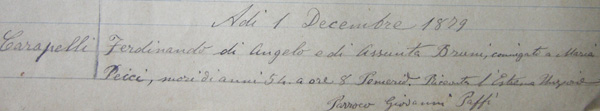 Adi 1 Decembre 1879
Carapelli Ferdinando di Angelo e di Assunta Bruni, coniugato a Maria
" Peici, morì di anni 54 a ore 8 Pomerid. Ricevta l'Estrema Unzione
Parroco Giovanni Paffi